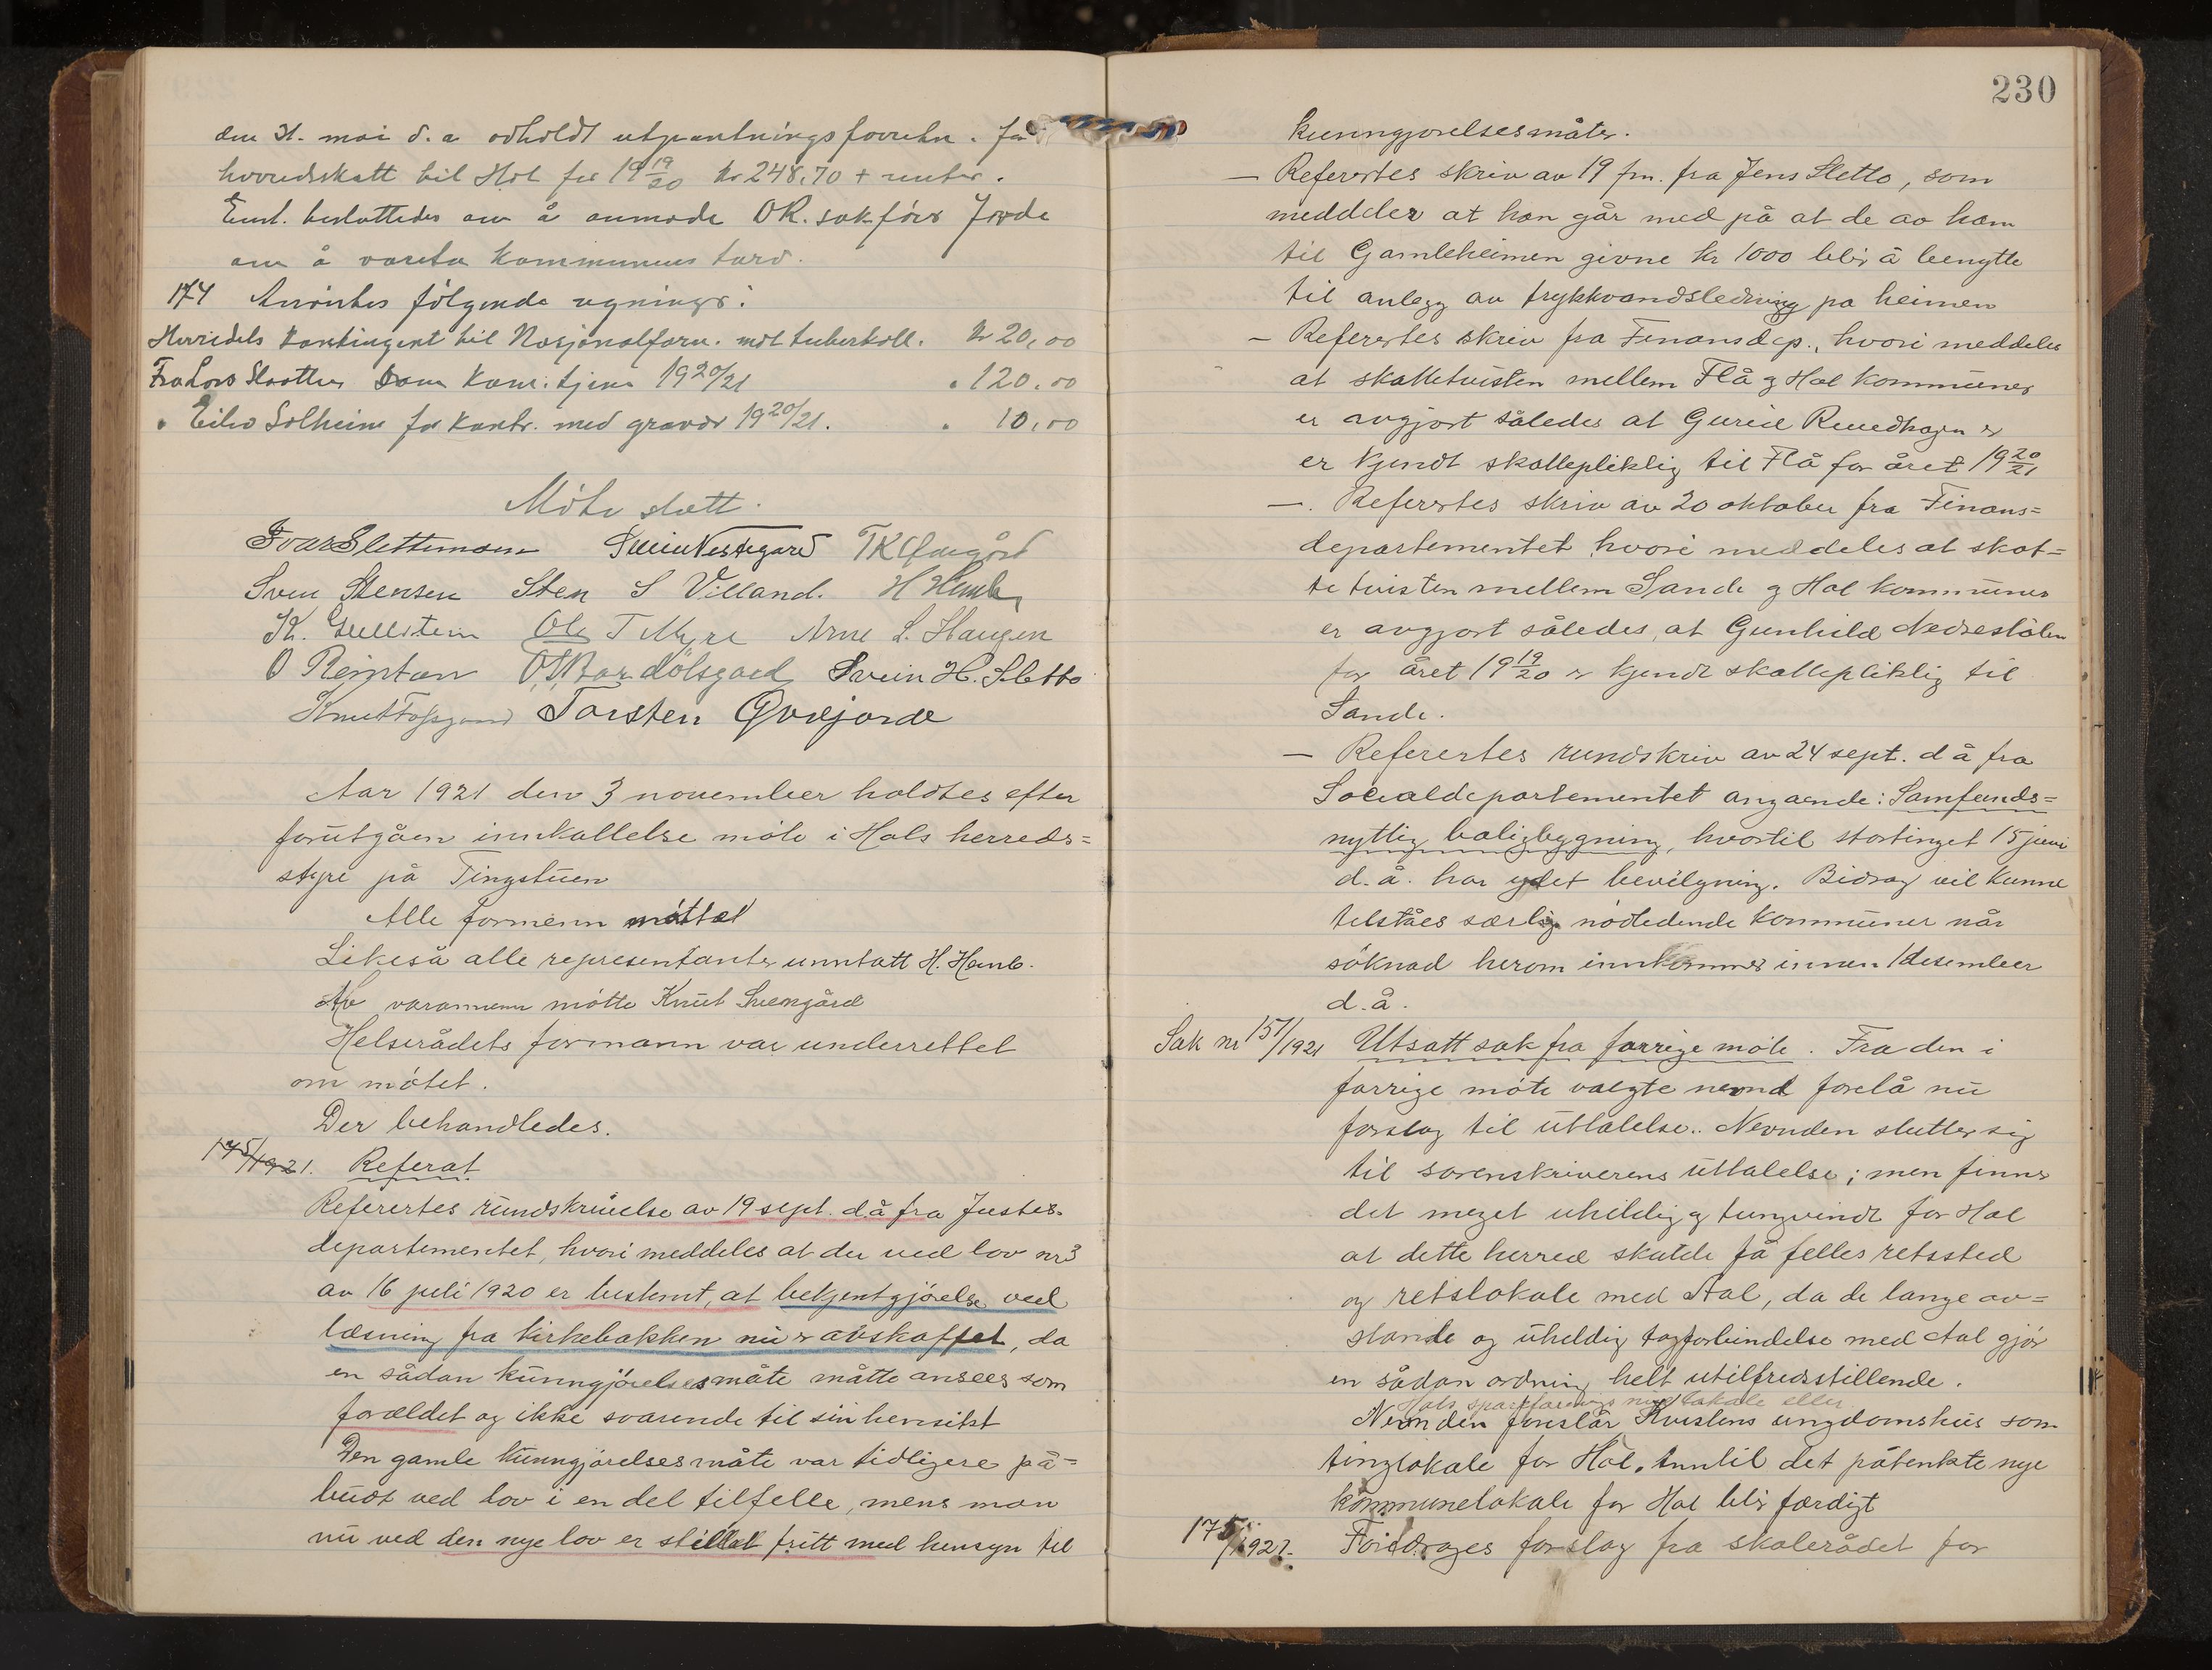 den 31. mai d. a avholdt utpantningsforretn. for
herredsskatt til Hol for 19 19/20 kr 248,70 + renter.
Enst. besluttedes av å anmode OR. sakfører Jorde
om å vareta kommunens tarv.
174 Anvistes følgende regninger:
Herredets kontingent til Nasjonalforn. mot tuberkull. kr 20,00
Fra Lars Slaatten som kom: tjener 19 20/21 " 120.00
" Eiliv Solheim for kontr. med graver 19 20/21. " 10,00
Møte slutt.
Ivar Slettemoen Svein Vestegard TK
Sven Stensen Sten S Villand. H Hemb
K. Gullstein Ole T Myre Arne L. Haugen
O Reintan O. Bardølsgard Svein H. Sletto
Knut Fossgard Torsten Qvejorde
Aar 1921 den 3 november holdtes efter
forutgåen innkallelse møte i Hols herreds=
styre på Tingstuen
Alle formenn møttet
Likeså alle representanter unntatt H. Hemb.
Av varamenn møtte Knut Sveengård
Helserådets formann var underrettet
om møtet.
Der behandledes.
175/1921. Referat
Referertes rundskrivelse av 19 sept. då fra Justis-
departementet, hvori meddeles at der ved lov nr 3
av 16 juli 1920 er bestemt, at bekjentgjørelse ved
læsning fra kirkebakken nu er avskaffet, da
en sådan kunngjørelsesmåte måtte ansees som
forældet og ikke svarende til sin hensikt
Den gamle kunngjørelsesmåte var tidligere på=
budt ved lov i en del tilfelle, mens man
nu ved den nye lov er stillet fritt med hensyn til
230
kunngjørelsesmåter.
— Referertes skriv av 19 fm. fra Jens Sletto, som
meddeler at han går med på at de av ham
til Gamleheimen givne kr 1000 blir å benytte
til anlegg av trykkvandsledning på heimen
— Referertes skriv fra Finansdep., hvori meddeles
at skattetvisten mellem Flå og Hol kommuner
er avgjort således at Guri Rueedhagen er
er kjendt skattepliktig til Flå for året 19 20/21
—. Referertes skriv av 20 oktober fra Finans=
departementet hvori meddeles at skat=
te tvisten mellem Sande og Hol kommuner
er avgjort således, at Gunhild Nedrestølen
for året 19 19/20 er kjendt skattepliktig til
Sande.
— Referertes rundskriv av 24 sept. d å fra
Socialdepartementet angaende: Samfunds=
nyttig boligbygning, hvortil stortinget 15 juni
d. å. har ydet bevilgning. Bidrag vil kunne
tilståes særlig nødledende kommuner når
søknad herom innkommer innen 1 desember
d. å.
Sak nr 151/1921 Utsatt sak fra forrige møte. Fra den i
forrige møte valgte nevnd forelå nu
forslag til uttalelse. Nevnden slutter sig
til sorenskriverens uttalelse; men finner
det meget uheldig og tungvindt for Hol
at dette herred skulde få felles retssted
og retslokale med Aal, da de lange av=
stande og uheldig togforbindelse med Aal gjør
en sådan ordning helt utilfredsstillende.
Hols sparforenings nye lokale eller
Nevnden foreslår Kvislens ungdomshus som
tinglokale for Hol, inntil det påtenkte nye
kommunelokale for Hol blir færdigt
175/1921. Foredroges forslag fra skolerådet for